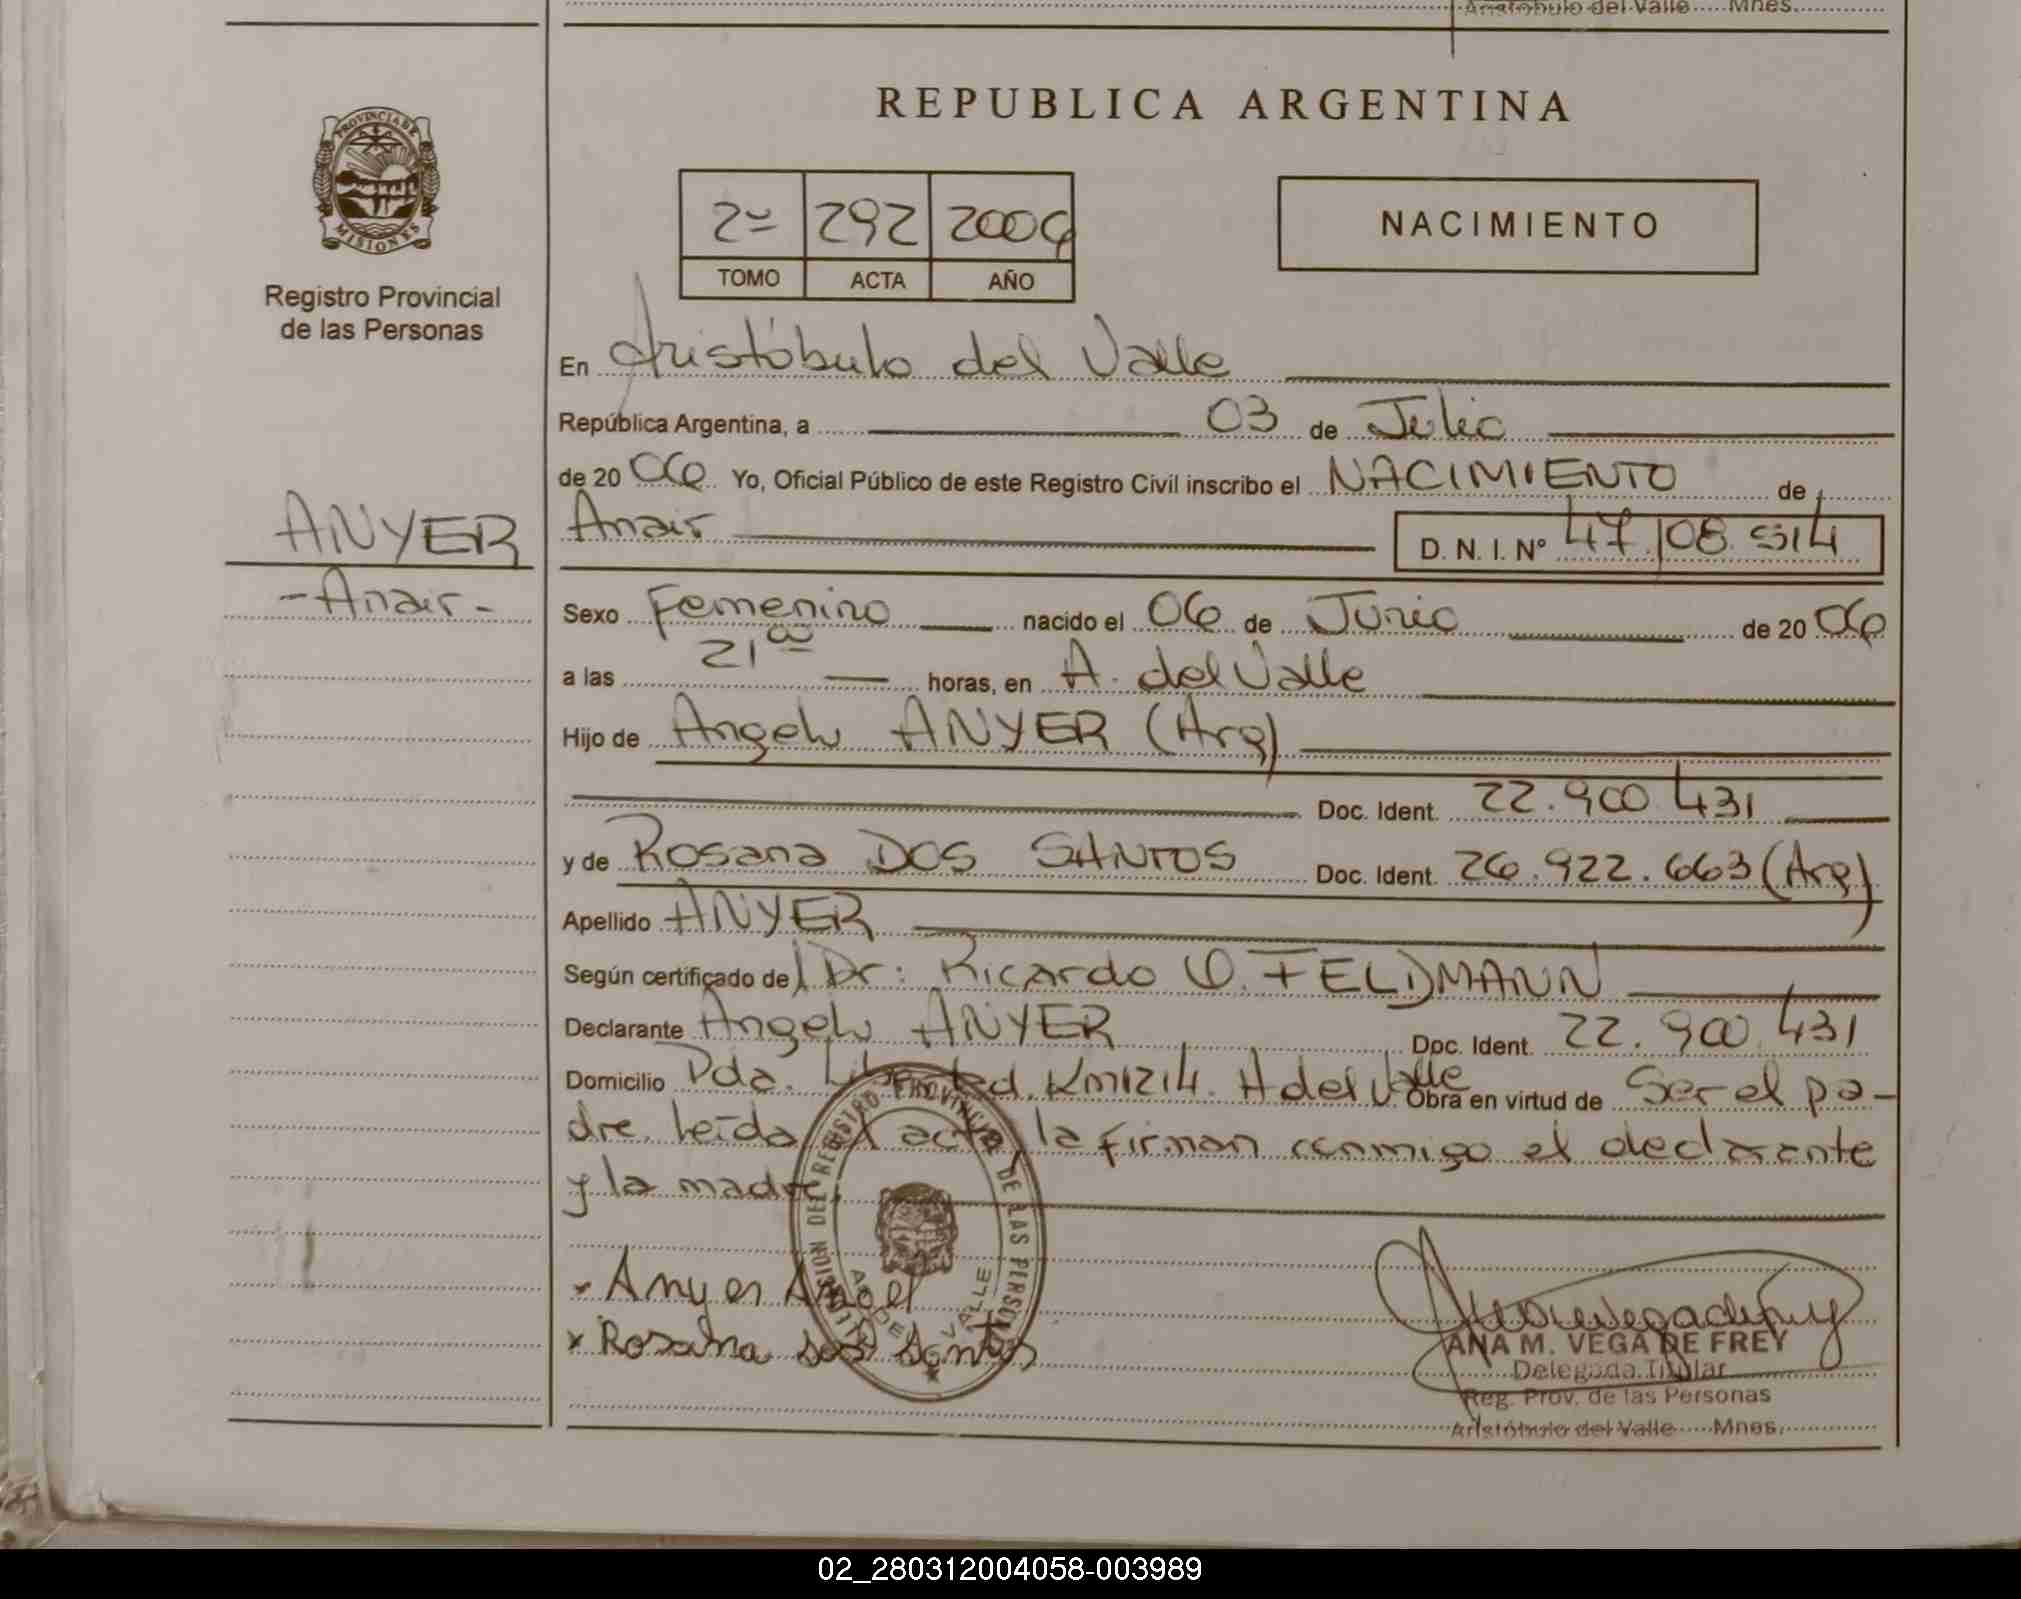 Aristóbulo del Valle Mnes.
REPUBLICA ARGENTINA
PROVINCIA DE MISIONES
Registro Provincial
de las Personas
2º 292 2006
TOMO ACTA AÑO
NACIMIENTO
En Aristóbulo del Valle
República Argentina, a 03 de Julio
de 20 06 Yo, Oficial Público de este Registro Civil inscribo el NACIMIENTO de
ANYER
-Anair-
Anair D. N. I. Nº 47.108.514
Sexo Femenino nacido el 06 de Junio de 20 06
a las 21 00 horas, en A. del Valle
Hijo de Angelo ANYER (Arg)
Doc. Ident. 22.900.431
y de Rosana DOS SANTOS Doc. Ident. 26.922.663 (Arg)
Apellido ANYER
Según certificado del Dr: Ricardo O. FELDMANN
Declarante Angelo ANYER Doc. Ident. 22.900.431
Domicilio Pda. Libertad. Km 1214. A del Valle Obra en virtud de Ser el pa-
dre. leída el acta la firman conmigo el declarante
y la madre.
x Anyer Angel
x Rosana dos Santos
DEL REGISTRO PROVINCIAL DE LAS PERSONAS
VALLE
ANA M. VEGA DE FREY
Delegada Titular
Reg. Prov. de las Personas
Aristóbulo del Valle Mnes.
02_280312004058-003989